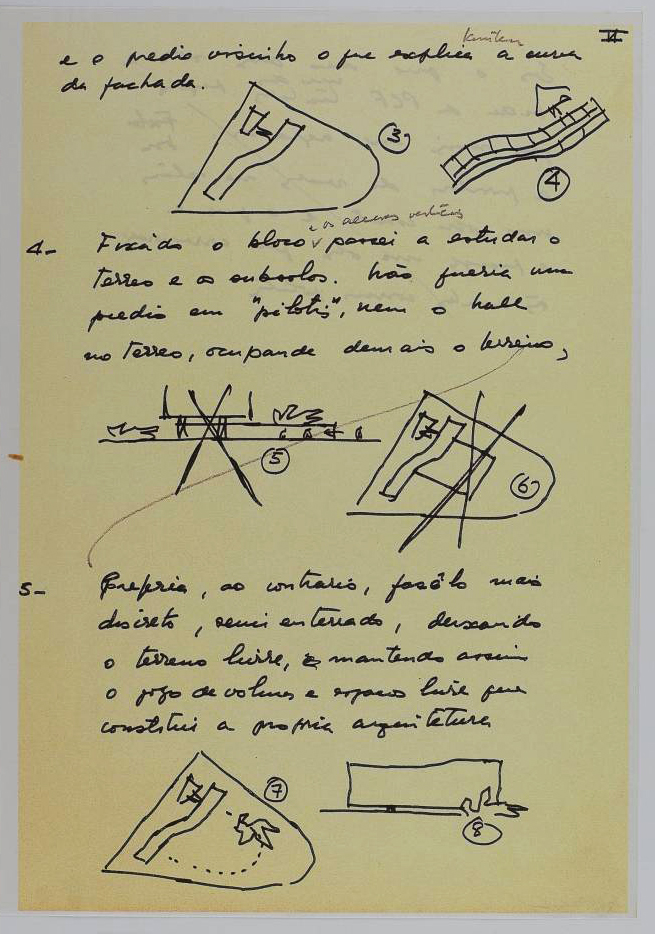 II
e o predio visinho o que explica a curva
da fachada.
3
4
e os acessos verticais
4- Fixado o bloco passei a estudar o
terreo e os subsolos. Não queria um
predio em "pilotis", nem o hall
no terreo, ocupando demais o terreno,
5
6
5- Preferia, ao contrario, fasê-lo mais
discreto, semi enterrado, deixando
o terreno livre, e mantendo assim
o jogo de volumes e espaços livre que
constitui a propria arquitetura
7
8